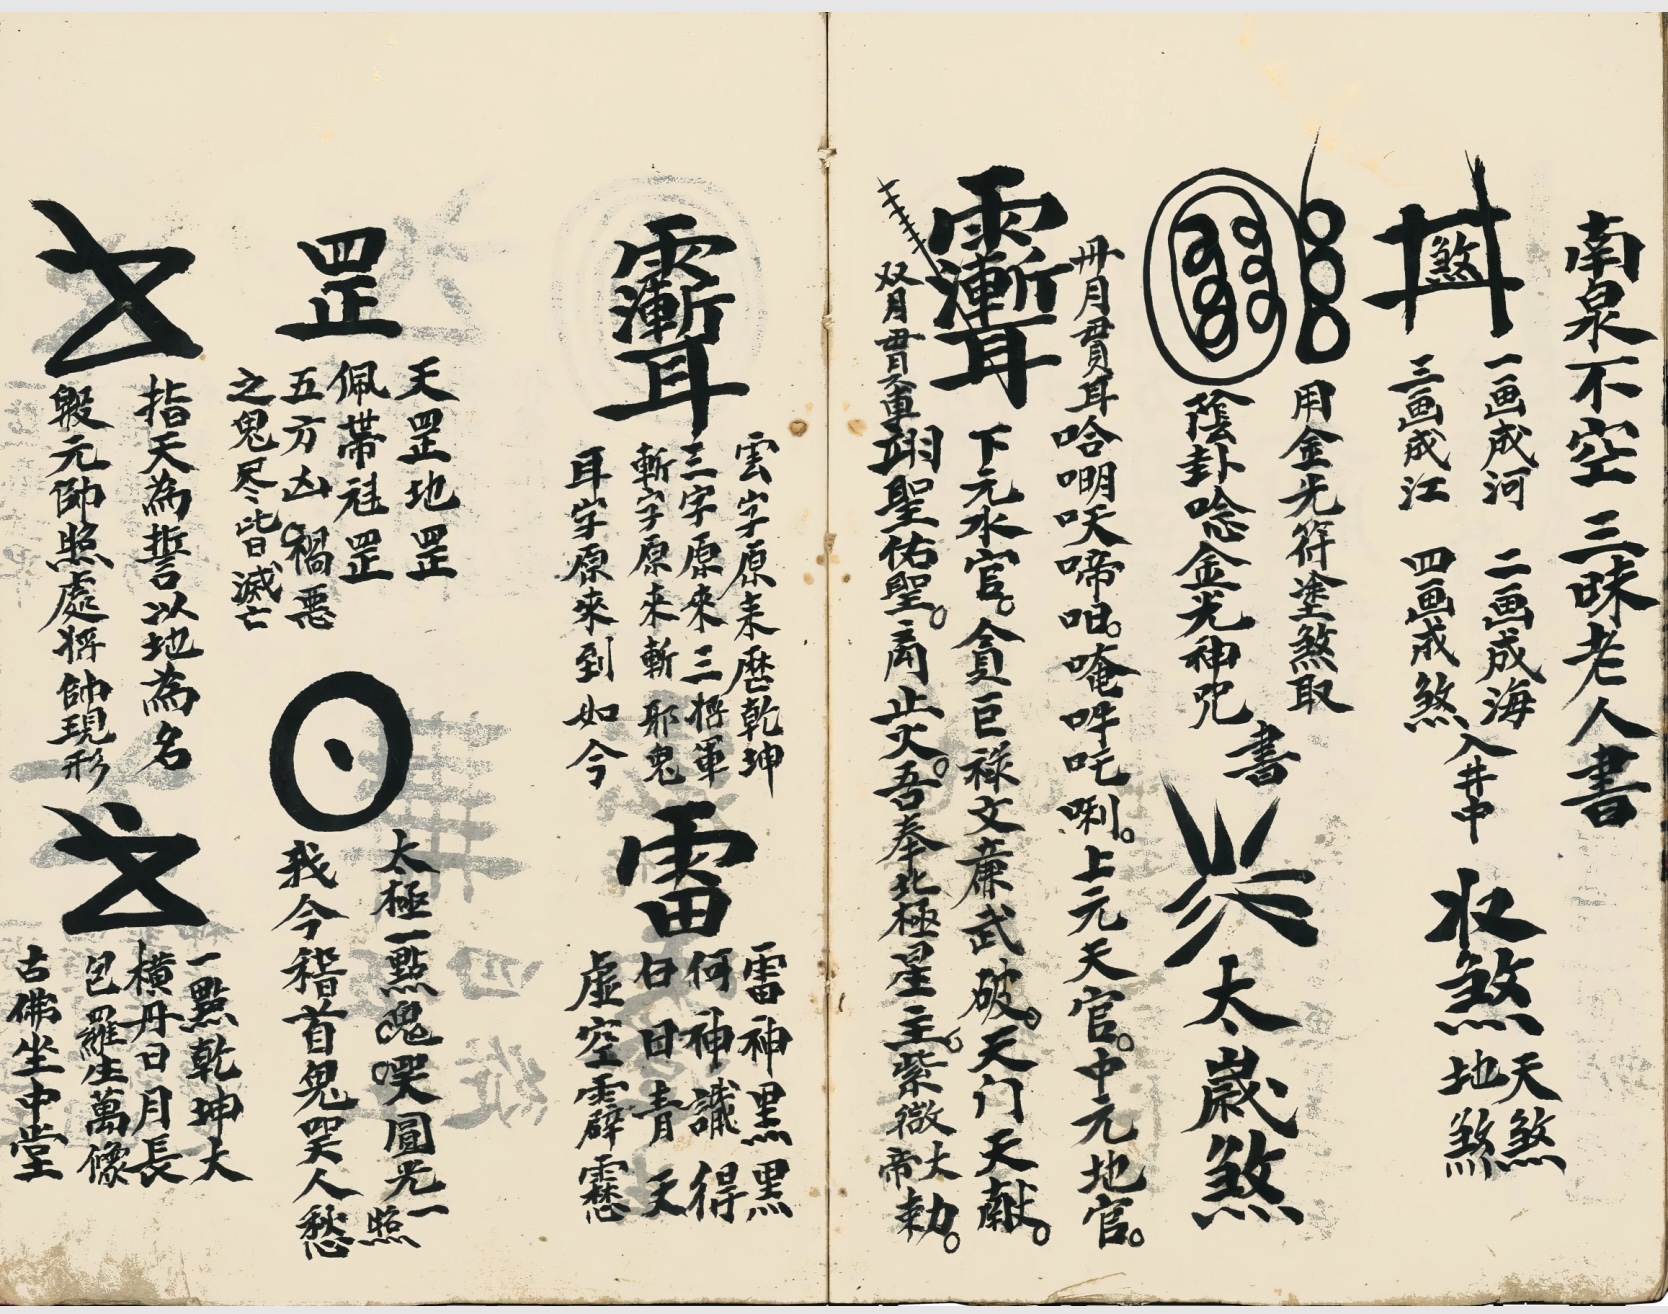 南泉不空三昧老人書
煞
一画成河 二画成海
三画成江 四画成煞 入井中
收煞
天煞
地煞
用金光符塗煞取
陰卦唸金光神咒
書
太歲煞
毌月毌貫耳哈啁吙啼呾。唵吽吒唎。上元天官。中元地官。
下元水官。貪巨祿文廉武破。天门天獻。
双月
翊聖佑聖。
止火。吾奉北極星主。紫微大帝勅。
雲字原來歷乾坤
三字原來三將軍
斬字原來斬邪鬼
耳字原來到如今
雷
雷神黑黑
何神識得
白日青天
虛空霹靂
罡
天罡地罡
佩帶魁罡
五方凶禍惡
之鬼尽皆滅亡
太極一點鬼哭圓光一照
我今稽首鬼哭人愁
指天為誓以地為名
殷元帥照處將帥現形
一點乾坤大
橫丹日月長
包羅生萬像
古佛坐中堂